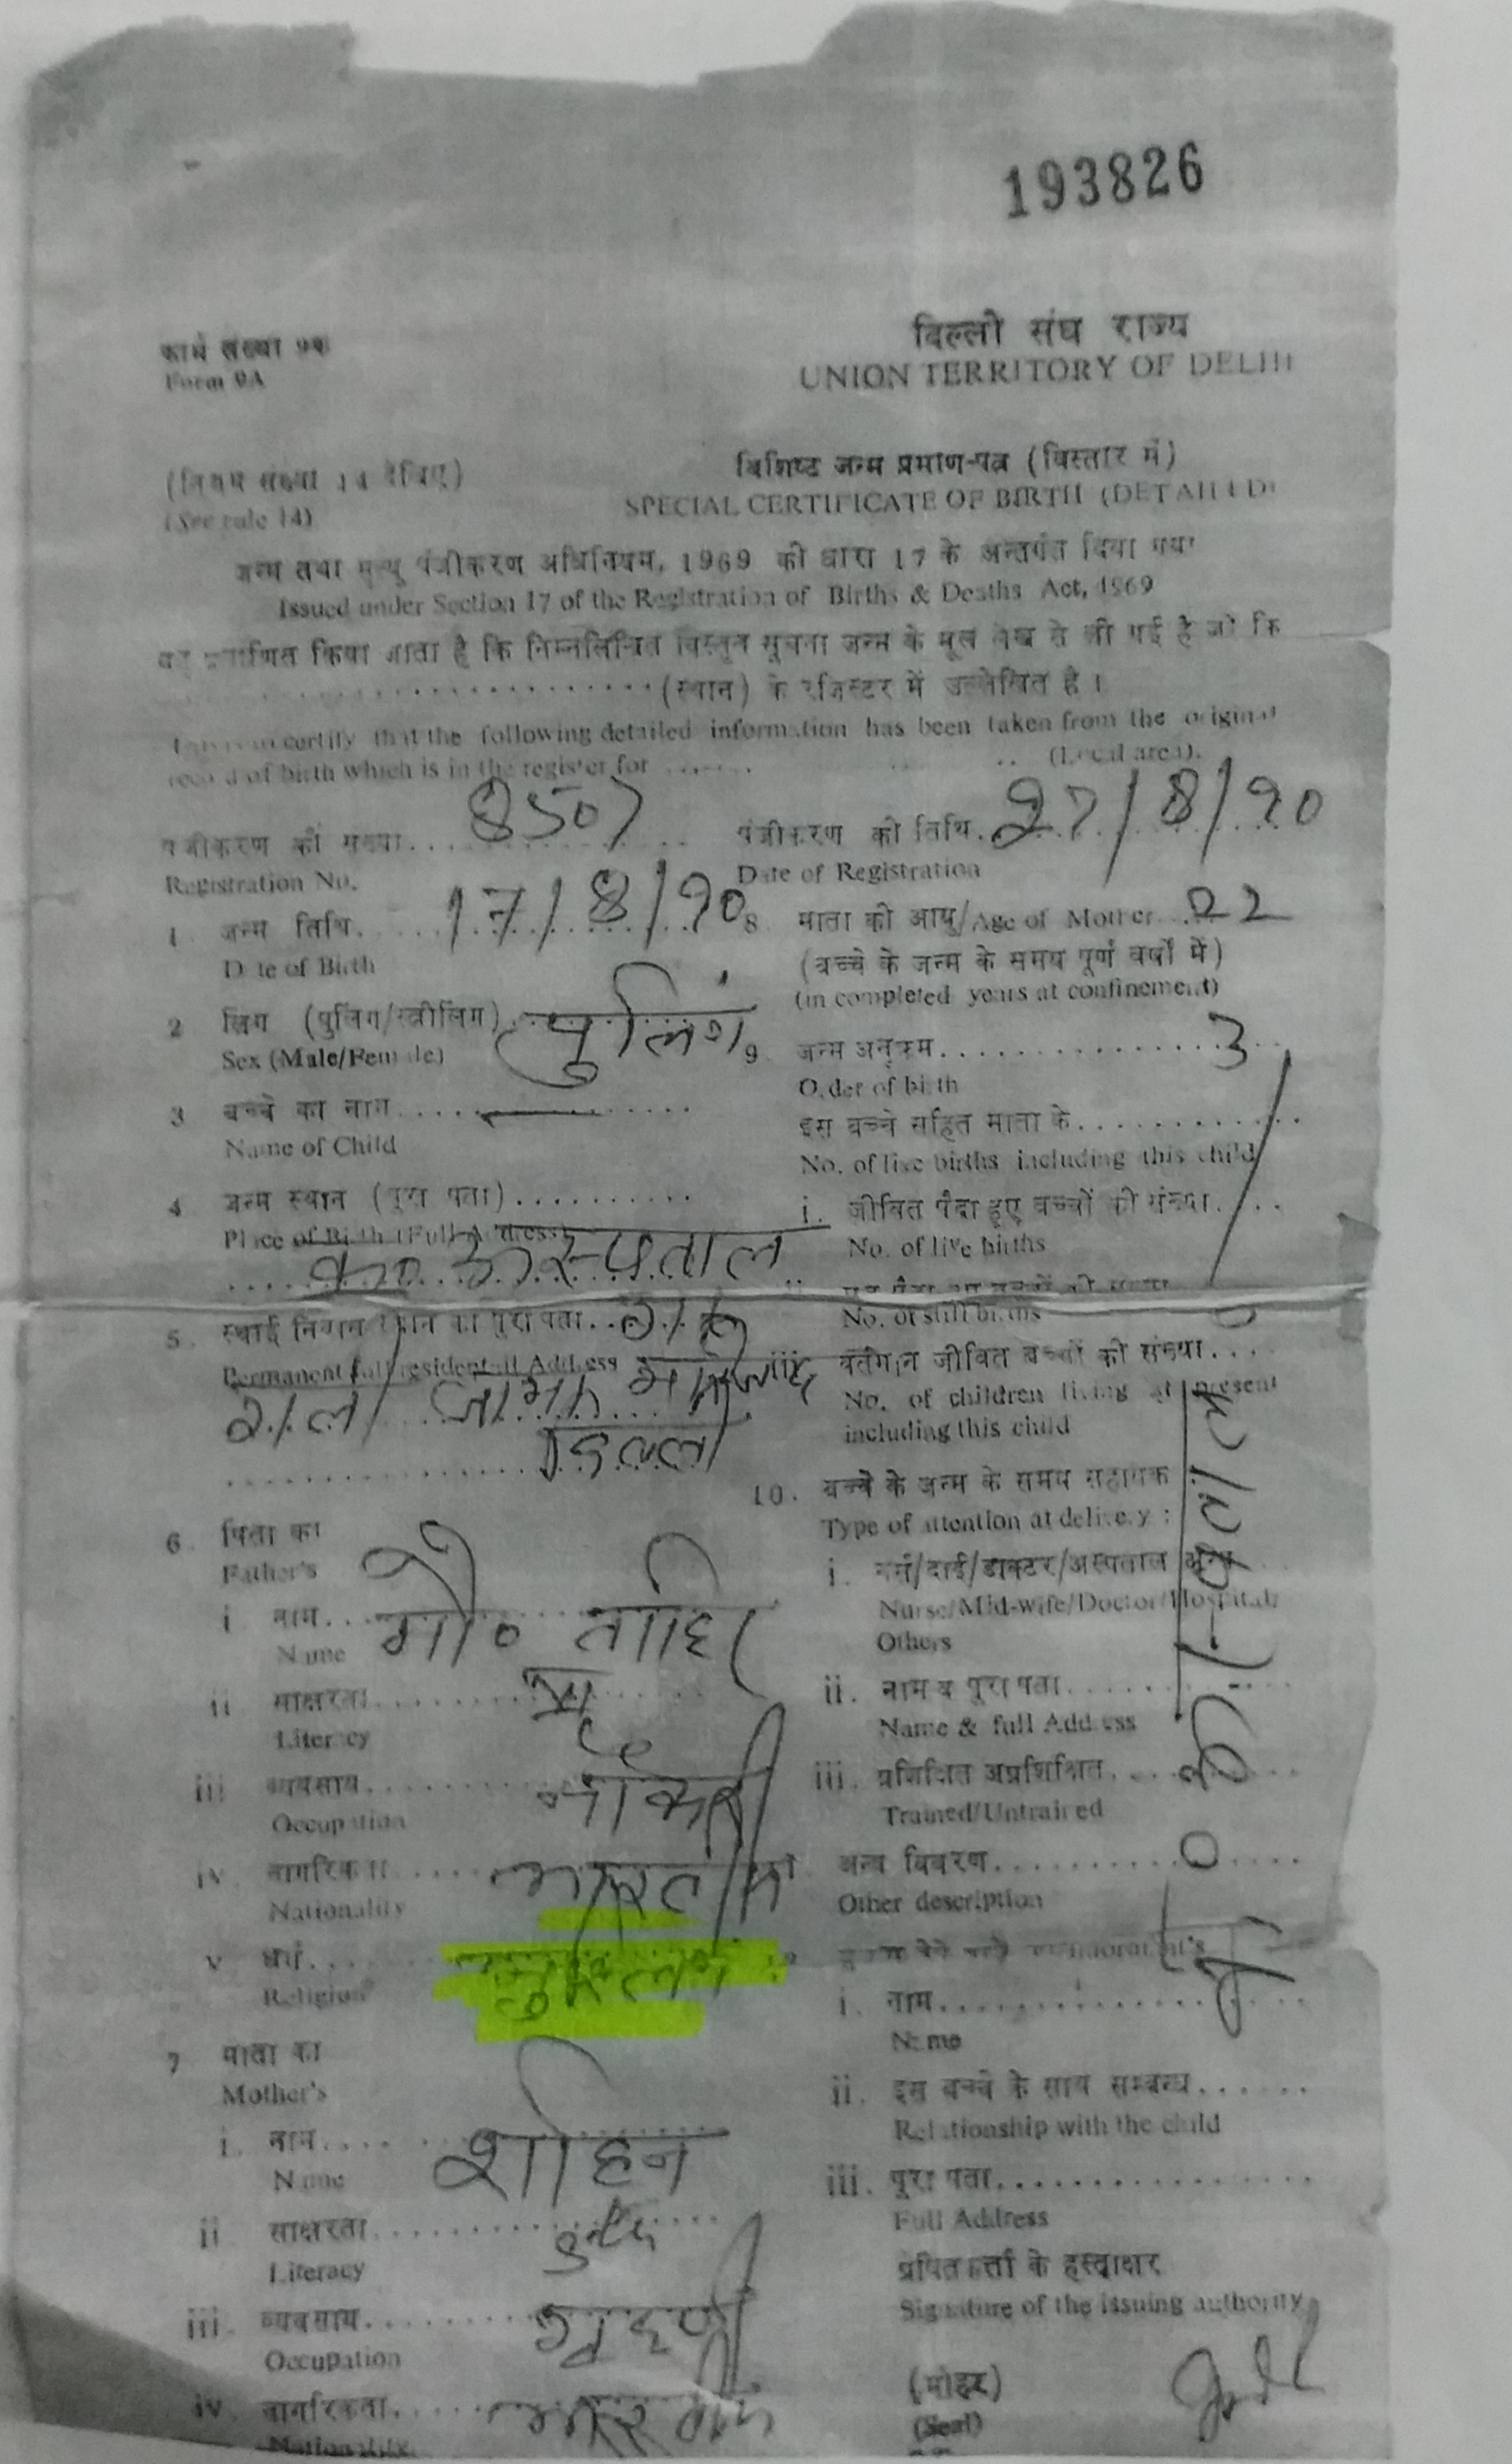 193826
फार्म संख्या 9क
Form 9A
दिल्ली संघ राज्य
UNION TERRITORY OF DELHI
(नियम संख्या 14 देखिए)
(See rule 14)
विशिष्ट जन्म प्रमाण-पत्र (विस्तार में)
SPECIAL CERTIFICATE OF BIRTH (DETAILED)
जन्म तथा मृत्यु पंजीकरण अधिनियम, 1969 की धारा 17 के अन्तर्गत दिया गया
Issued under Section 17 of the Registration of Births & Deaths Act, 1969
यह प्रमाणित किया जाता है कि निम्नलिखित विस्तृत सूचना जन्म के मूल लेख से ली गई है जो कि
(स्थान) के रजिस्टर में उल्लेखित है ।
This is to certify that the following detailed information has been taken from the original
record of birth which is in the register for ....... (Local area).
पंजीकरण की संख्या.... 8507
Registration No.
पंजीकरण की तिथि. 27/8/90
Date of Registration
1 जन्म तिथि.... 17/8/90
Date of Birth
2 लिंग (पुलिंग/स्त्रीलिंग) पुलिंग
Sex (Male/Female)
3 बच्चे का नाम.... —
Name of Child
4 जन्म स्थान (पूरा पता)..........
Place of Birth (Full Address)
अस्पताल
5. स्थाई निवास स्थान का पूरा पता..
Permanent full residential Address
6 पिता का
Father's
i नाम... मो० ताहिर
Name
ii साक्षरता....
Literacy
iii व्यवसाय.... नौकरी
Occupation
iv नागरिकता.... भारतीय
Nationality
v धर्म.... मुस्लिम
Religion
7 माता का
Mother's
i. नाम.... शाहिन
Name
ii साक्षरता....
Literacy
iii. व्यवसाय.... गृहणी
Occupation
iv नागरिकता.... भारतीय
Nationality
8 माता की आयु/Age of Mother 22
(बच्चे के जन्म के समय पूर्ण वर्षों में)
(in completed years at confinement)
9 जन्म अनुक्रम.... 3
Order of birth
इस बच्चे सहित माता के....
No. of live births including this child
i. जीवित पैदा हुए बच्चों की संख्या....
No. of live births
No. of still births
iii वर्तमान जीवित बच्चों की संख्या....
No. of children living at present
including this child
10. बच्चे के जन्म के समय सहायक
Type of attention at delivery :
i. नर्स/दाई/डाक्टर/अस्पताल अन्य
Nurse/Mid-wife/Doctor/Hospital/
Others
ii. नाम व पूरा पता....
Name & full Address
iii. प्रशिक्षित अप्रशिक्षित....
Trained/Untrained
अन्य विवरण.... 0
Other description
सूचना देने वाले का/Informant's
i. नाम....
Name
ii. इस बच्चे के साथ सम्बन्ध......
Relationship with the child
iii. पूरा पता....
Full Address
प्रेषितकर्ता के हस्ताक्षर
Signature of the issuing authority
(मोहर)
(Seal)